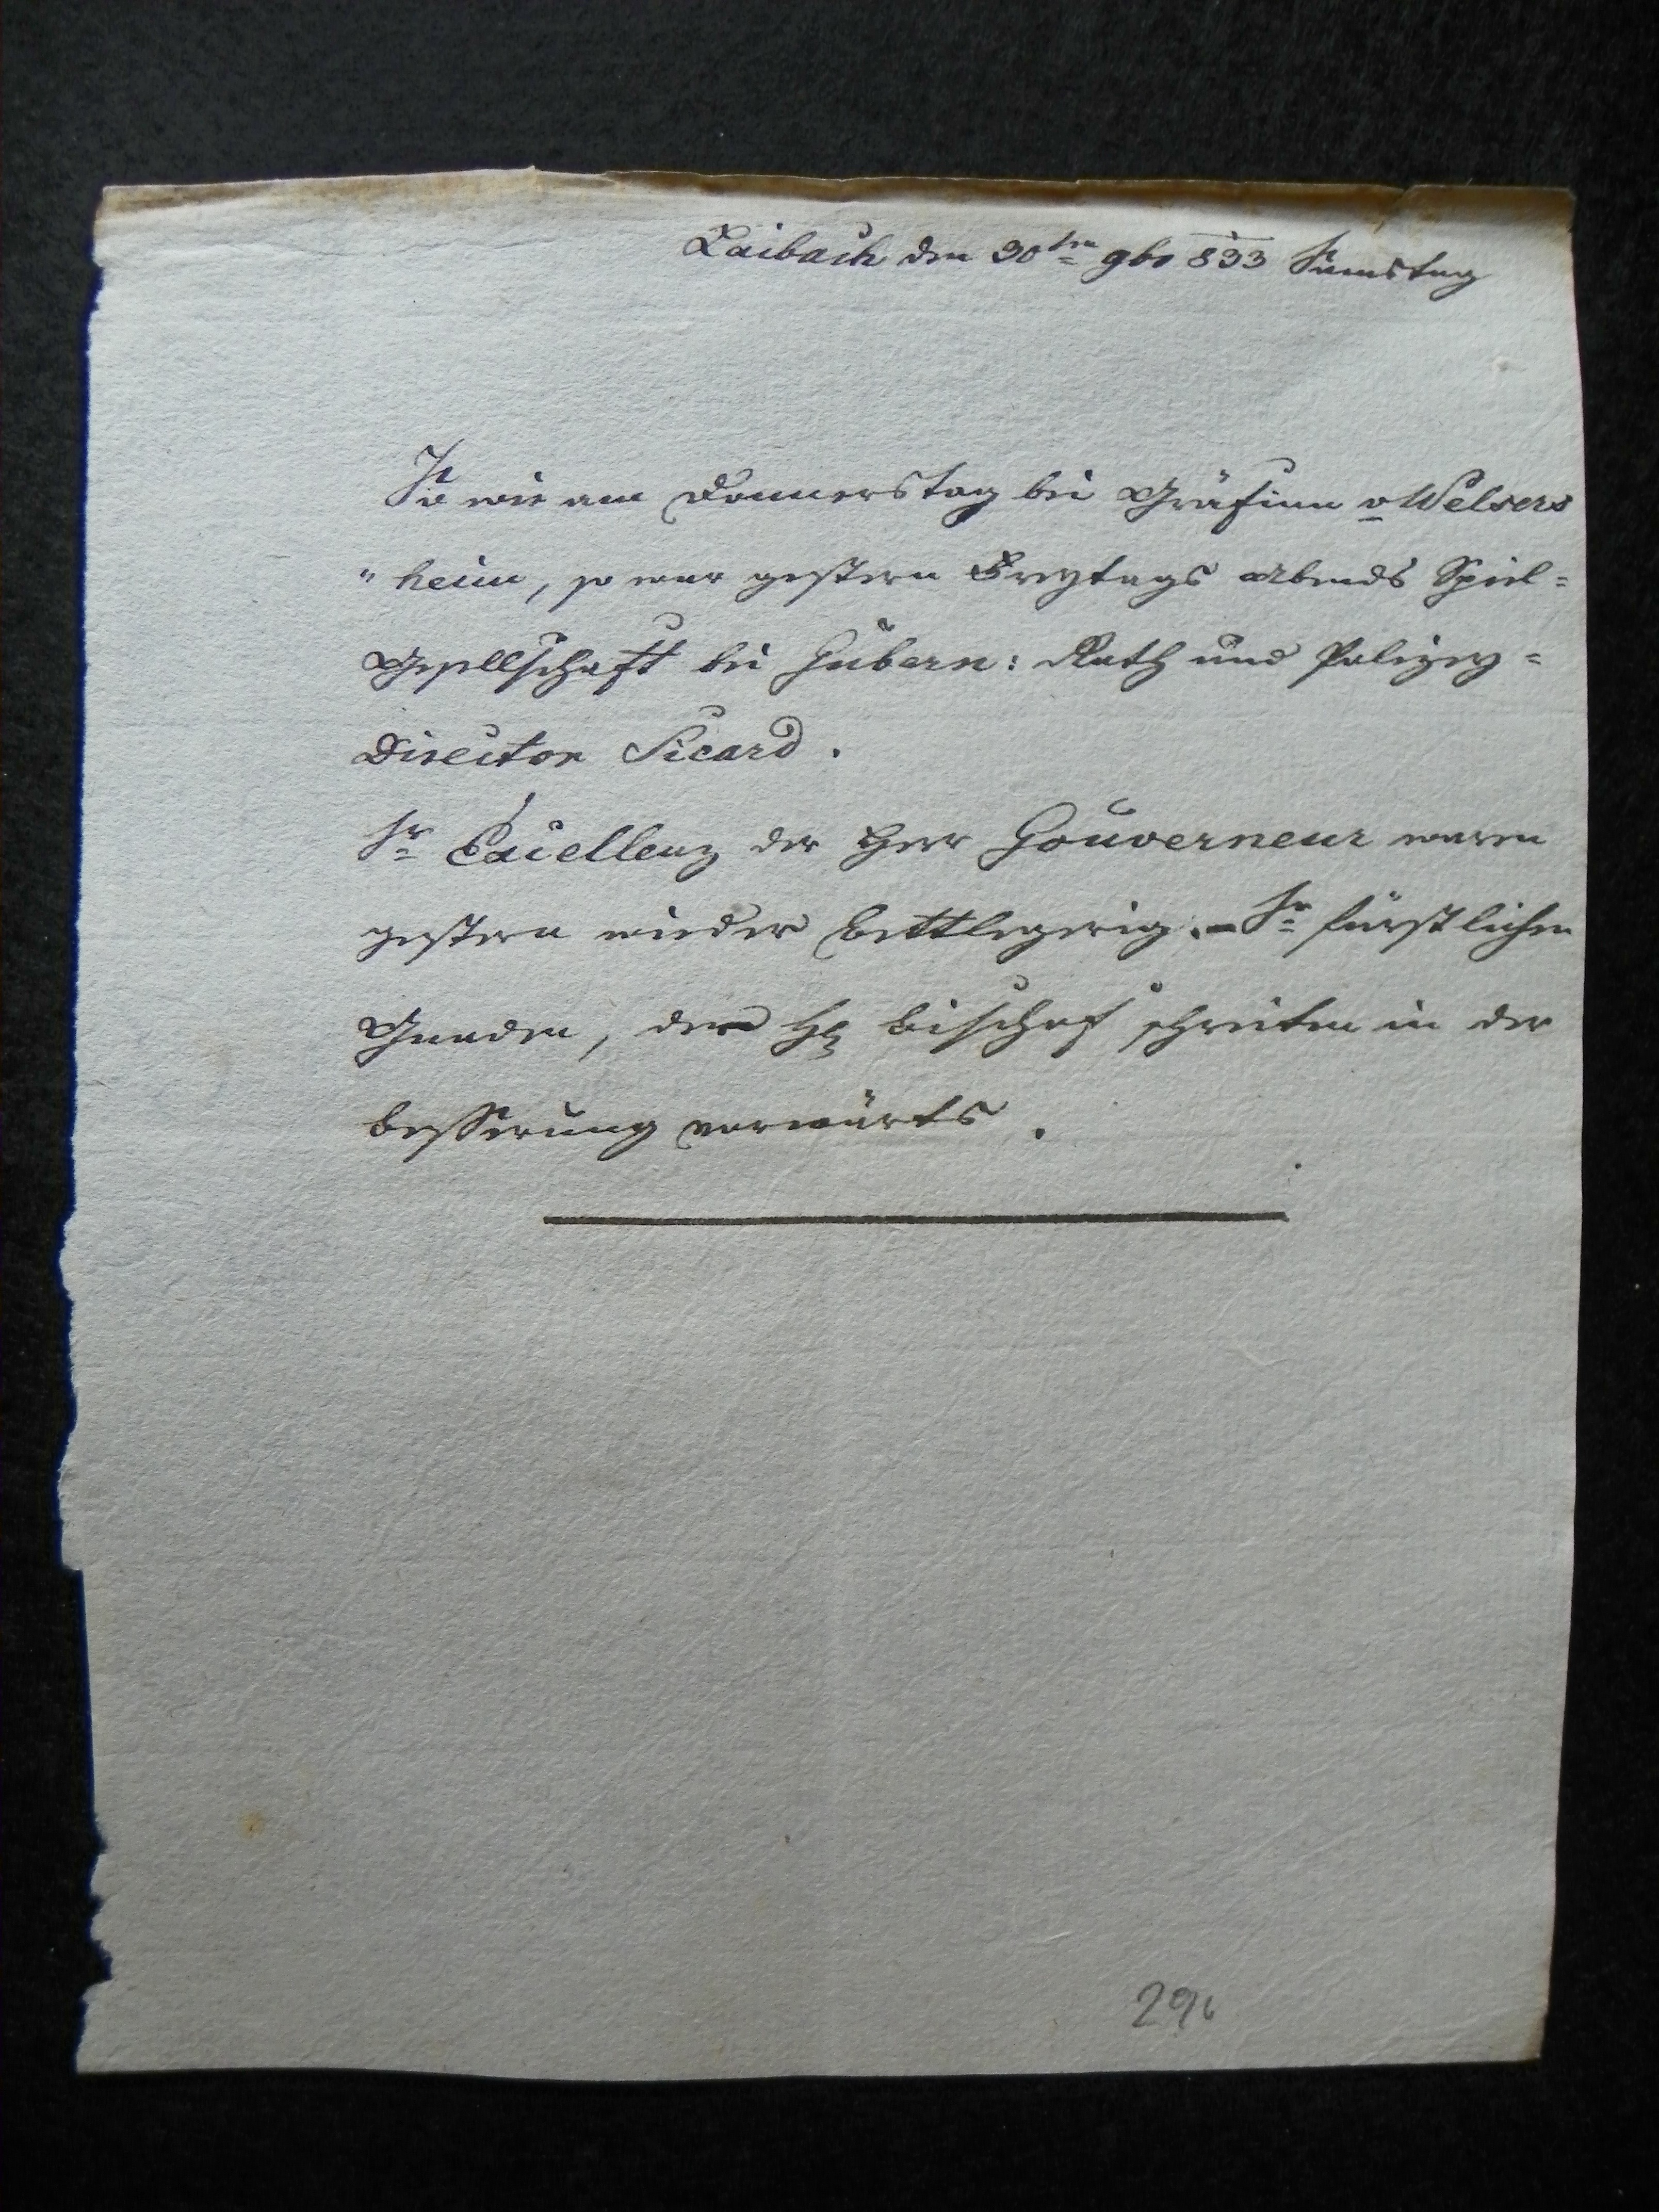 Laibach den 30ten 9br 833 Samstag
So wie am Donnerstag bei Gräfinn v Welsers
"heim, so war gestern Freytags Abends Spiel=
Gesellschaft bei Gubern: Rath und Polizey=
Director Sicard.
Sr Excellenz der Herr Gouverneur waren
gestern wieder bettlegerig. – Sr fürstlichen
Gnaden, der H Bischof schreiten in der
Besserung vorwärts.
296